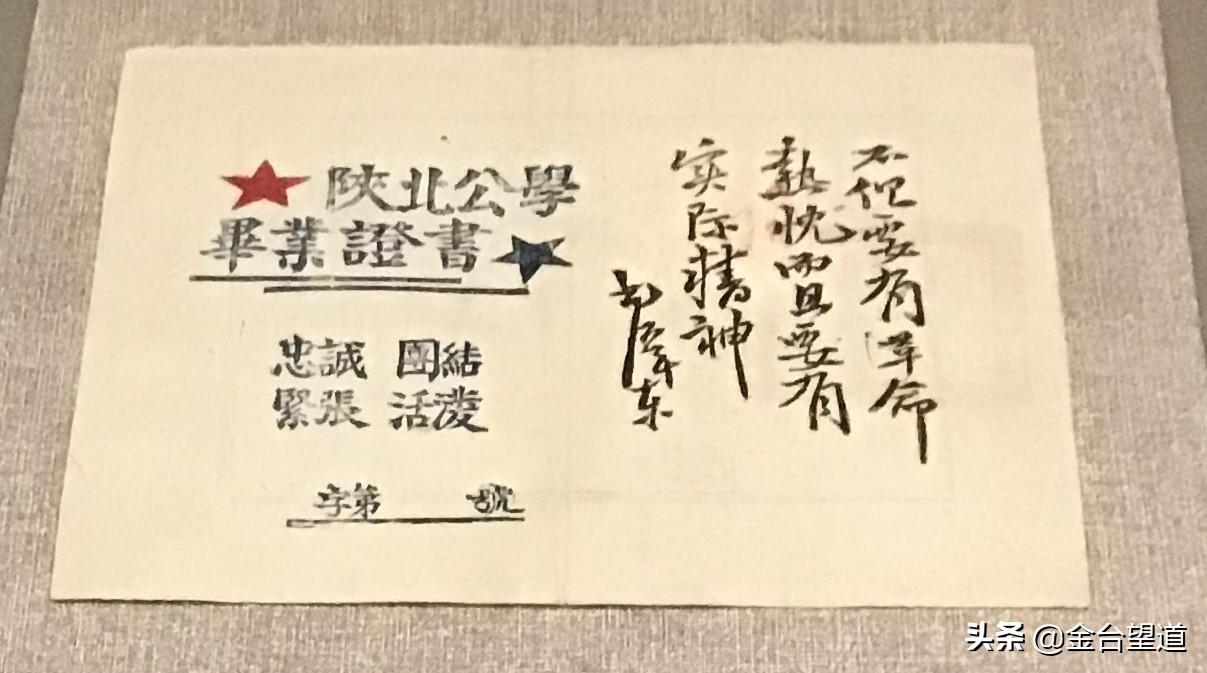 陝北公學
畢業證書
忠誠 團結
緊張 活潑
字第 號
不但要有革命
熱忱而且要有
实际精神
毛泽东
头条 @金台望道